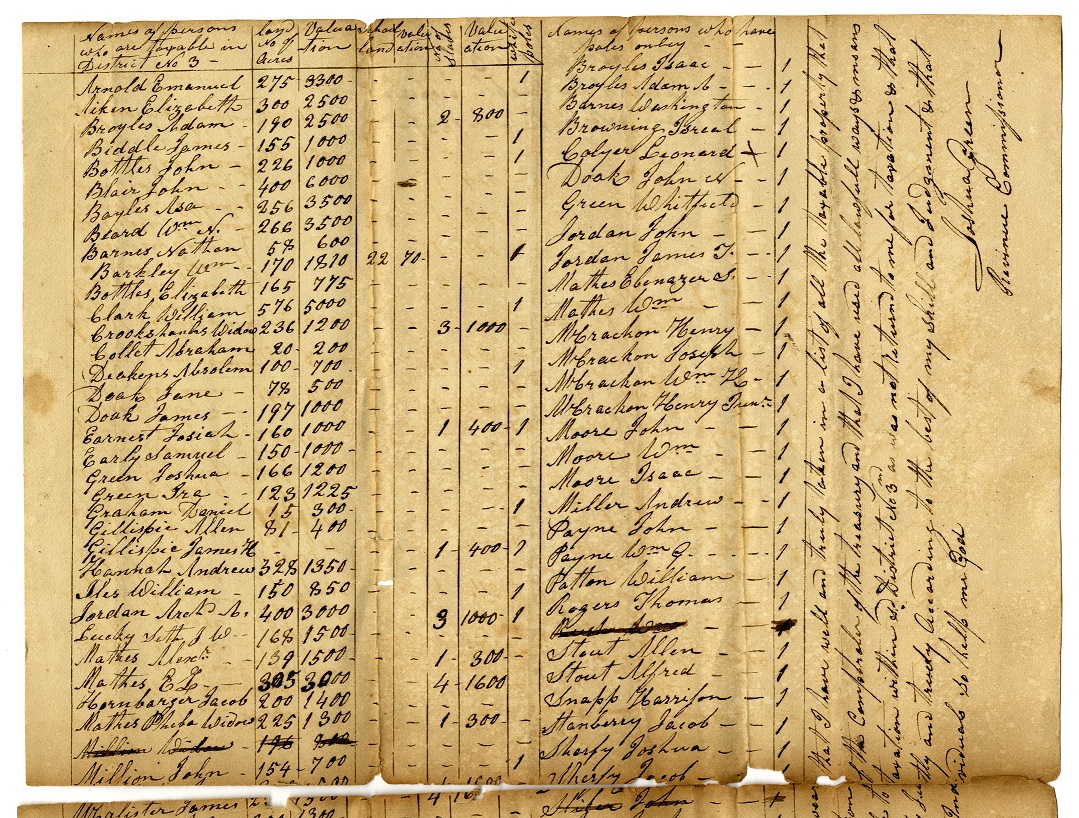 Names of persons who are taxable in District No 3 - | land No of Acres | Valuation | School land | Valuation | No of Slaves | Valuation | white poles
Arnold Emanuel 275 3300 - - - - 1
Aiken Elizabeth 300 2500 - - - - -
Broyles Adam - 190 2500 - - 2 - 800 - -
Biddle James - 155 1000 - - - - 1
Bottles John - 226 1000 - - - - 1
Blair John - 400 6000
Bayles Asa - 256 3500
Beard Wm N. - 266 3500
Barnes Nathan 58 600
Barkley Wm - 170 1810 22 70 - - - 1
Bottles Elizabeth 165 775
Clark William 576 5000 - - - - 1
Crookshanks Widow 236 1200 - - 3 - 1000 -
Collet Abraham 20 - 200
Deakens Absolem 100 - 700 - - - - - 1
Doak Jane - 78 500
Doak James - - 197 1000
Earnest Josiah - 160 1000 - - 1 - 400 - 1
Early Samuel - 150 - 1000
Green Joshua - 166 1200
Green Ira - - 123 1225
Graham Daniel 15 300 - - - - - 1
Gillispie Allen 81 - 400
Gillispie James H - - - - 1 - 400 - 1
Hannah Andrew 328 1350
Iles William - 150 - 850 - - - - 1
Jordan Arch A. 400 3000 - - 3 1000 - 1
Lucky Seth J W - 168 1500
Mathes Alexr. - 139 1500 - - 1 - 300 -
Mathes E L - 305 3000 - - 4 - 1600 -
Hornbarger Jacob 200 1400
Mathes Pheba Widow 225 1300 - - 1 - 300 -
Million Widow - 196
Million John - 154 - 700 - - - - 1
4 1600
McAlister James
Names of persons who have poles only - -
Broyles Isaac - - 1
Broyles Adam A - - 1
Barnes Washington - 1
Browning Isreal - 1
Colyer Leonard 1
Doak John N - - 1
Green Whitfield - 1
Jordan John - - 1
Jordan James T. - - 1
Mathes Ebenazer S. - 1
Mathes Wm - - 1
McCrackon Henry - 1
McCrackon Joseph - 1
McCrackon Wm H - - 1
McCrackon Henry Junr. 1
Moore John - - 1
Moore Wm - - 1
Moore Isaac - - 1
Miller Andrew - - 1
Payne John - - 1
Payne Wm G. - - 1
Patton William - 1
Rogers Thomas - - 1
Stout Allen - - 1
Stout Alfred - - 1
Snapp Harrison - 1
Stanberry Jacob - - 1
Sherfy Joshua - - 1
Sherfy Jacob - - 1
John
that I have well and truly taken in a list of all the taxable property that
of the Comptroler of the treasury and that I have used all lawfull ways & means
to taxation within sd District No 3 as was not returned to me for taxation & that
and truely According to the best of my skill and Judgment & that
Individuals so help me God
Joshua Green
Revinue Commissioner